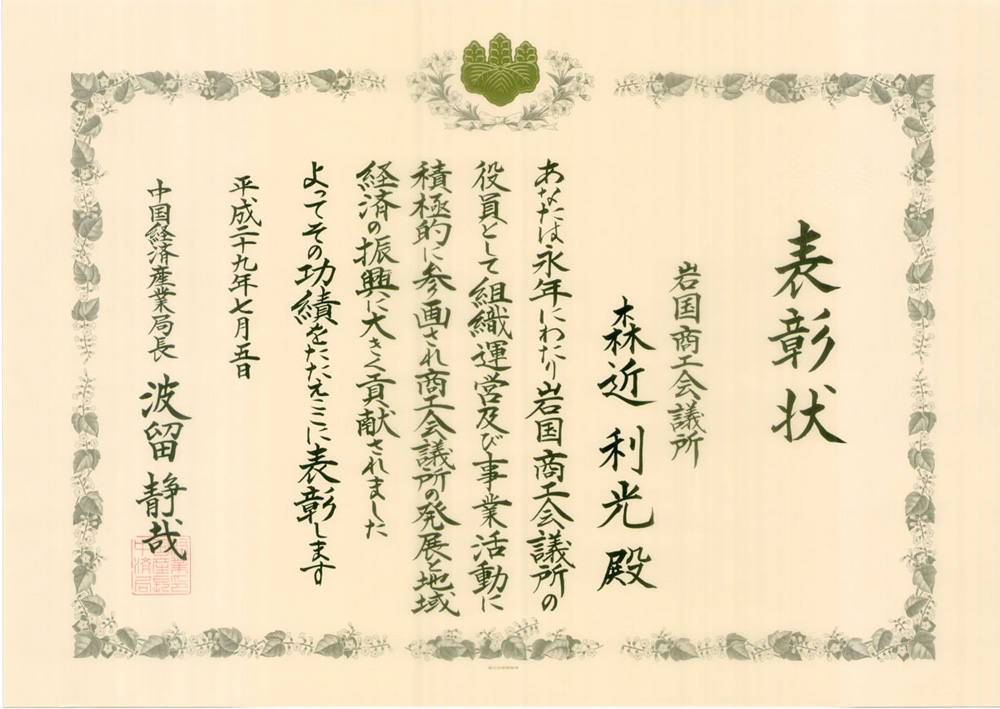 表彰状
岩国商工会議所
森近利光殿
あなたは永年にわたり岩国商工会議所の
役員として組織運営及び事業活動に
積極的に参画され商工会議所の発展と地域
経済の振興に大きく貢献されました
よってその功績をたたえここに表彰します
平成二十九年七月五日
中国経済産業局長 波留静哉